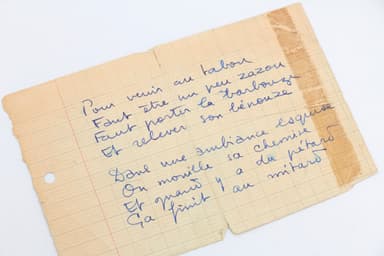 Pour venir au tabou
Faut être un peu zazou
Faut porter la barbouze
Et relever son bénouze
Dans une ambiance exquise
On mouille sa chemise
Et quand y a du pétard
Ça finit au mitard